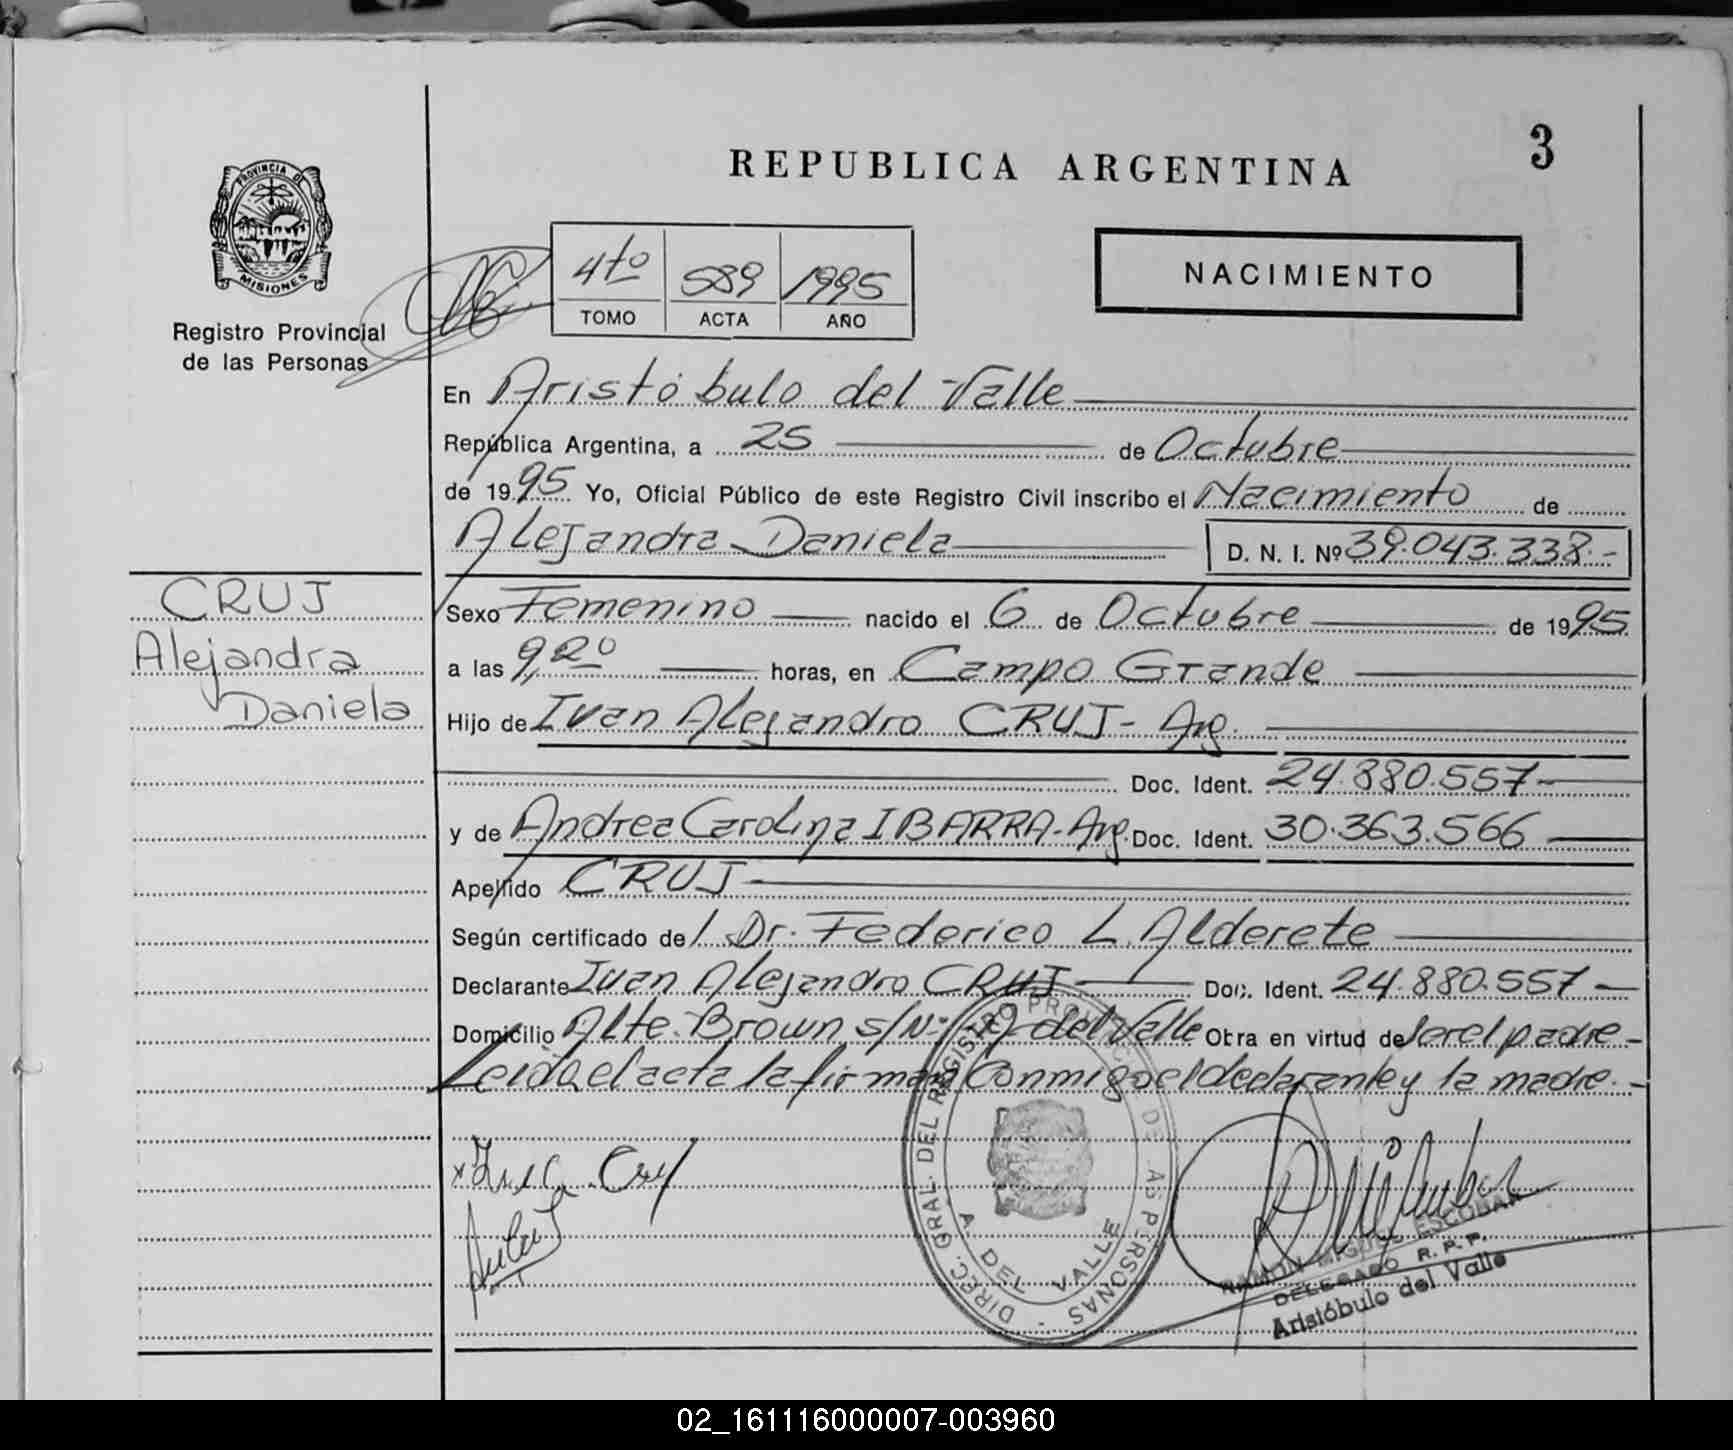 3
REPUBLICA ARGENTINA
PROVINCIA D
MISIONES
Registro Provincial
de las Personas
4to 589 1995
TOMO ACTA AÑO
NACIMIENTO
En Aristóbulo del Valle
República Argentina, a 25 de Octubre
de 1995 Yo, Oficial Público de este Registro Civil inscribo el Nacimiento de
Alejandra Daniela D. N. I. Nº 39.043.338.-
CRUJ
Alejandra
Daniela
Sexo Femenino nacido el 6 de Octubre de 1995
a las 9,20 horas, en Campo Grande
Hijo de Ivan Alejandro CRUJ - Arg.
Doc. Ident. 24.880.557-
y de Andrea Carolina IBARRA - Arg. Doc. Ident. 30.363.566
Apellido CRUJ
Según certificado del Dr. Federico L. Alderete
Declarante Ivan Alejandro CRUJ Doc. Ident. 24.880.557-
Domicilio Alte. Brown s/Nº A. del Valle Obra en virtud de ser el padre-
Leida el acta la firman conmigo el declarante y la madre.-
DIREC. GRAL. DEL REGISTRO PROVINC. DE AS PERSONAS
A. DEL VALLE
RAMON MIGUEL ESCOBAR
DELEGADO R. P. P.
Aristóbulo del Valle
02_161116000007-003960